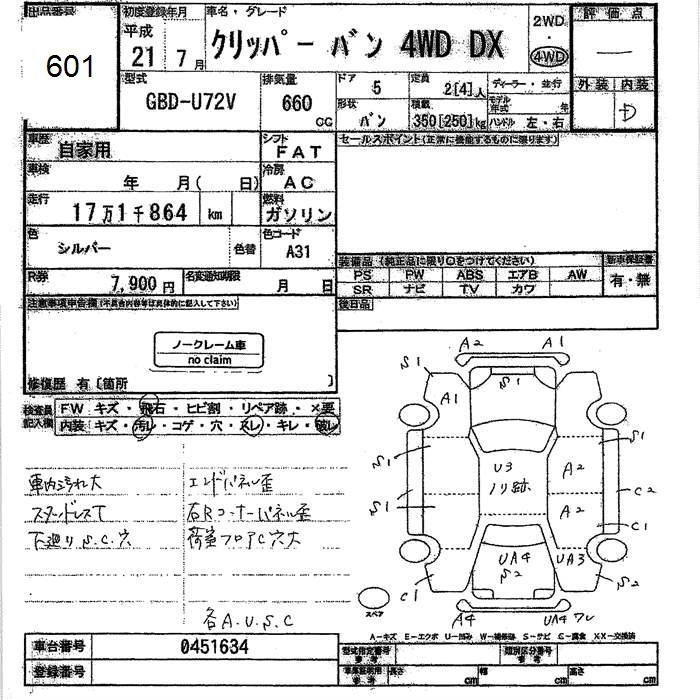 出品番号
601
初度登録年月
平成
21 7月
車名・グレード
クリッパー バン 4WD DX
2WD
・
4WD
評価点
外装 内装
D
型式
GBD-U72V
排気量
660
CC
ドア
5
定員
2[4]人
ディーラー・並行
形状
バン
積載
350[250]kg
モデル年式 年
ハンドル 左・右
車歴
自家用
シフト
FAT
セールスポイント(正常に機能するものに限ります)
車検
年 月( 日)
冷房
AC
走行
17万1千864 km
燃料
ガソリン
色
シルバー
色替
色コード
A31
装備品 (純正品に限り○をつけてください)
新車保証書
PS PW ABS エアB AW
有・無
SR ナビ TV カワ
R券
7,900円
名変通知期限
月 日
後日品
注意事項申告欄(不具合内容等は具体的に記入して下さい)
ノークレーム車
no claim
修復歴 有〔箇所 〕
検査員記入欄
FW キズ・飛石・ヒビ割・リペア跡・×要
内装 キズ・汚レ・コゲ・穴・スレ・キレ・破レ
車内汚れ大 エンドパネル歪
スタッドレスT 右Rコーナーパネル歪
下廻りS.C.穴 荷室フロアC穴大
各A.U.S.C
A2 A1
S1 S1
A1
S1 S1
U3
ノリ跡
A2
C2
S1 A2
C1
UA4 UA3
S2
C1 S2
A4 UA4ワレ
スペア
A-キズ E-エクボ U-凹み W-補修跡 S-サビ C-腐食 XX-交換済
車台番号
0451634
登録番号
型式指定番号
参考
類別区分番号
参考
長さ cm 幅 cm 高さ cm